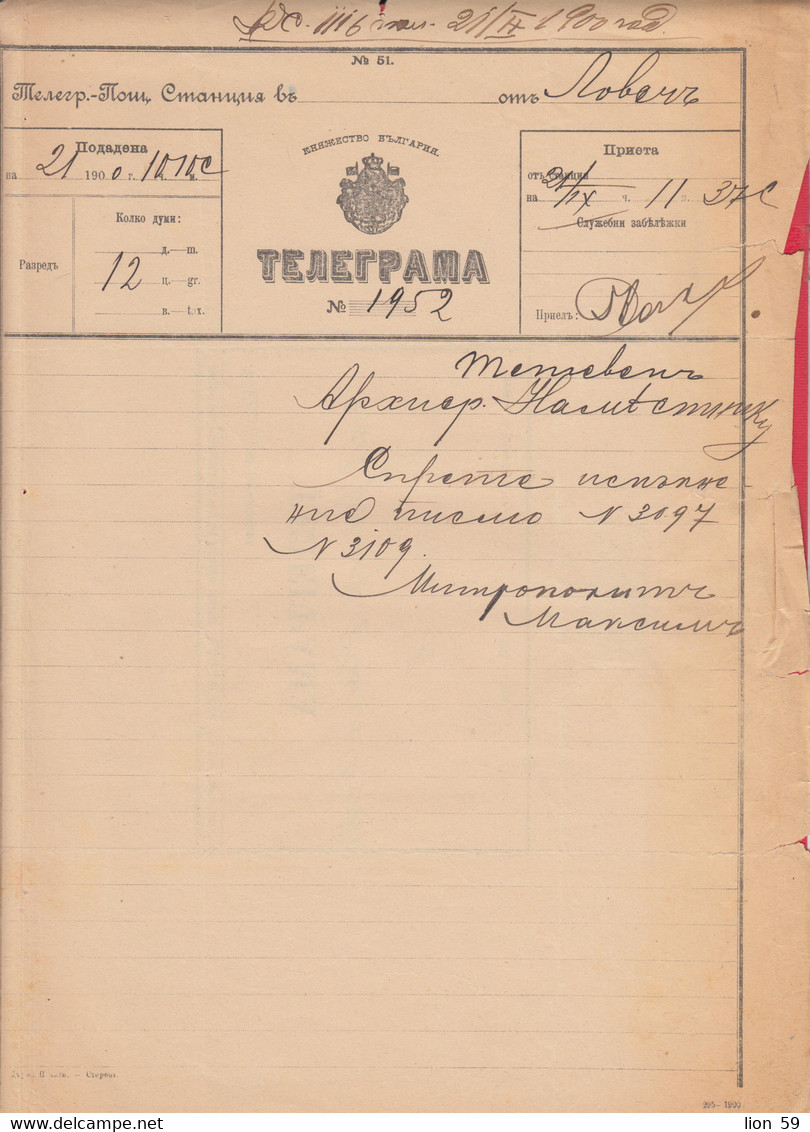 1116 21/IX 1900 год.
№ 51.
Телегр.-Пощ. Станция въ отъ Ловечъ
КНЯЖЕСТВО БЪЛГАРИЯ.
Подадена
на 21 1900 г. 10 ч. 10 м. С
Колко думи:
Разредъ
д.—m.
12 ц.—gr.
в.—t.x.
ТЕЛЕГРАМА
№ 1952
Приета
отъ станция
на 21/IX ч. 11 37 С
Служебни забѣлѣжки
Приелъ:
Тетевенъ
Архиер. Намѣстнику
Спрете изпълне-
ние писмо N 3097
N 3109.
Митрополитъ
Максимъ
295—1900
lion 59